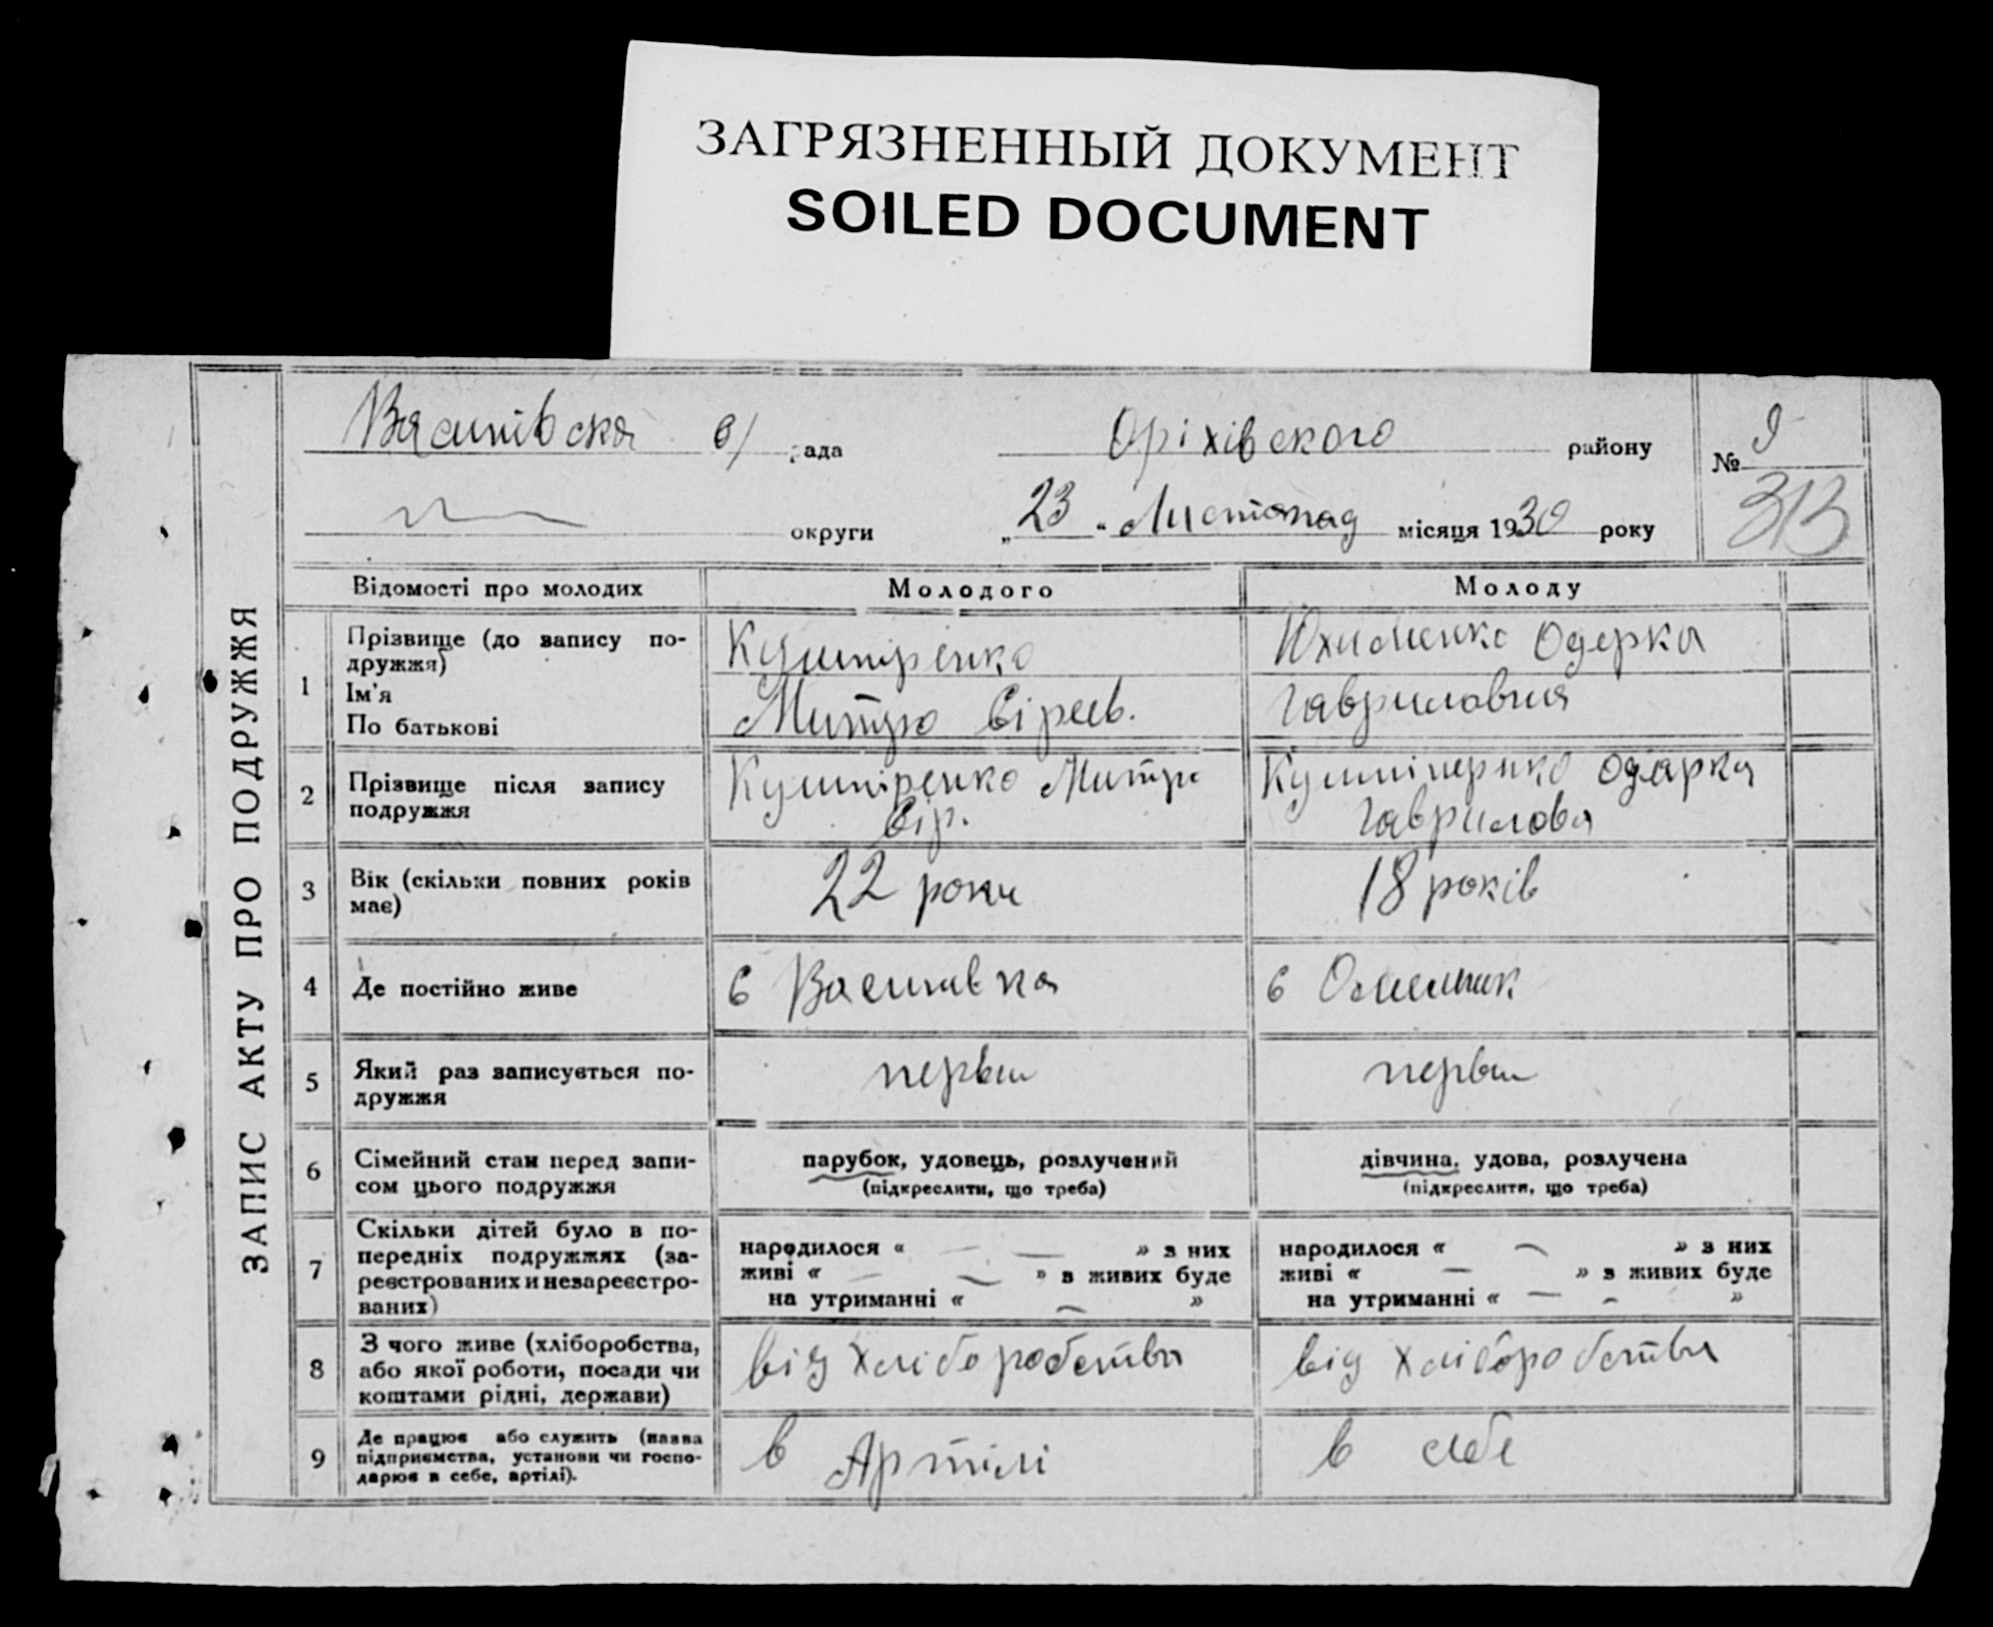 ЗАГРЯЗНЕННЫЙ ДОКУМЕНТ
SOILED DOCUMENT
ЗАПИС АКТУ ПРО ПОДРУЖЖЯ
Василівська с/ рада Оріхівського району № 9
округи „23“ Листопад місяця 1930 року 313
Відомості про молодих Молодого Молоду
1 Прізвище (до запису по-
дружжя)
Ім'я
По батькові
Кушніренко
Митро Сіреев.
Юхименко Одарка
Гавриловна
2 Прізвище після запису
подружжя
Кушніренко Митро
Сір.
Одарка
Гаврилова
3 Вік (скільки повних років
має)
22 роки
18 років
4 Де постійно живе
с Василивка
с Омельник
5 Який раз записується по-
дружжя
первш
первш
6 Сімейний стан перед запи-
сом цього подружжя
парубок, удовець, розлучений
(підкреслити, що треба)
дівчина, удова, розлучена
(підкреслити, що треба)
7 Скільки дітей було в по-
передніх подружжях (за-
реєстрованих и незареєстро-
ваних)
народилося « — — » з них
живі « — — » з живих буде
на утриманні « — »
народилося « — » з них
живі « — » з живих буде
на утриманні « — - »
8 З чого живе (хліборобства,
або якої роботи, посади чи
коштами рідні, держави)
від хліборобства
від хліборобства
9 Де працює або служить (назва
підприємства, установи чи госпо-
дарює в себе, артілі).
в Артілі
в себе